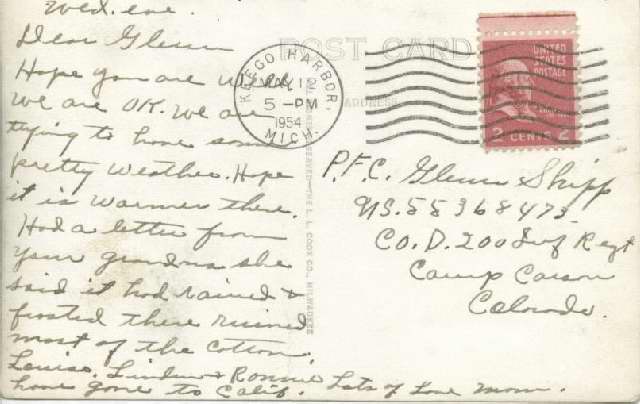 Wed. eve.
Dear Glenn
Hope you are well
we are OK. We are
trying to have some
pretty weather. Hope
it is warmer there.
Had a letter from
your grandma she
said it had rained &
frosted there ruined
most of the cotton.
Louise, Linden & Ronnie
have gone to Calif. Lots of Love Mom.
POST CARD
ADDRESS
KEEGO HARBOR,
5-PM
1954
MICH.
UNITED
STATES
POSTAGE
2 CENTS 2
THE L. L. COOK CO., MILWAUKEE
P.F.C. Glenn Shipp
US.55368473.
Co. D. 200 Inf Regt
Camp Carson
Colorado.